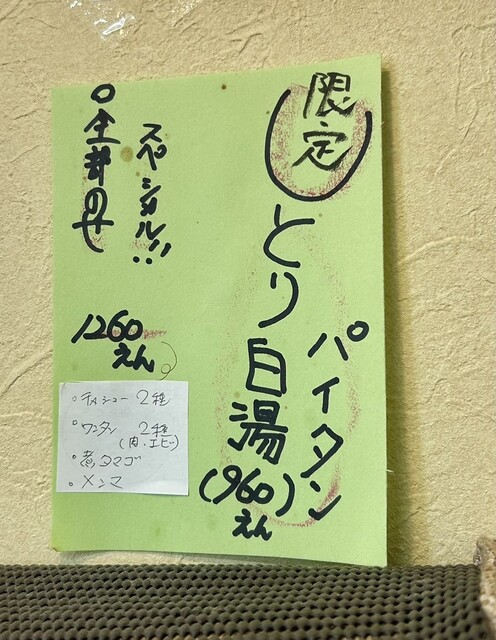 限定
とり白湯
パイタン
(960)
えん
スペシャル!!
○全部のせ
1260
えん
○チャシュー 2種
○ワンタン 2種
(肉・エビ)
・煮タマゴ
・メンマ